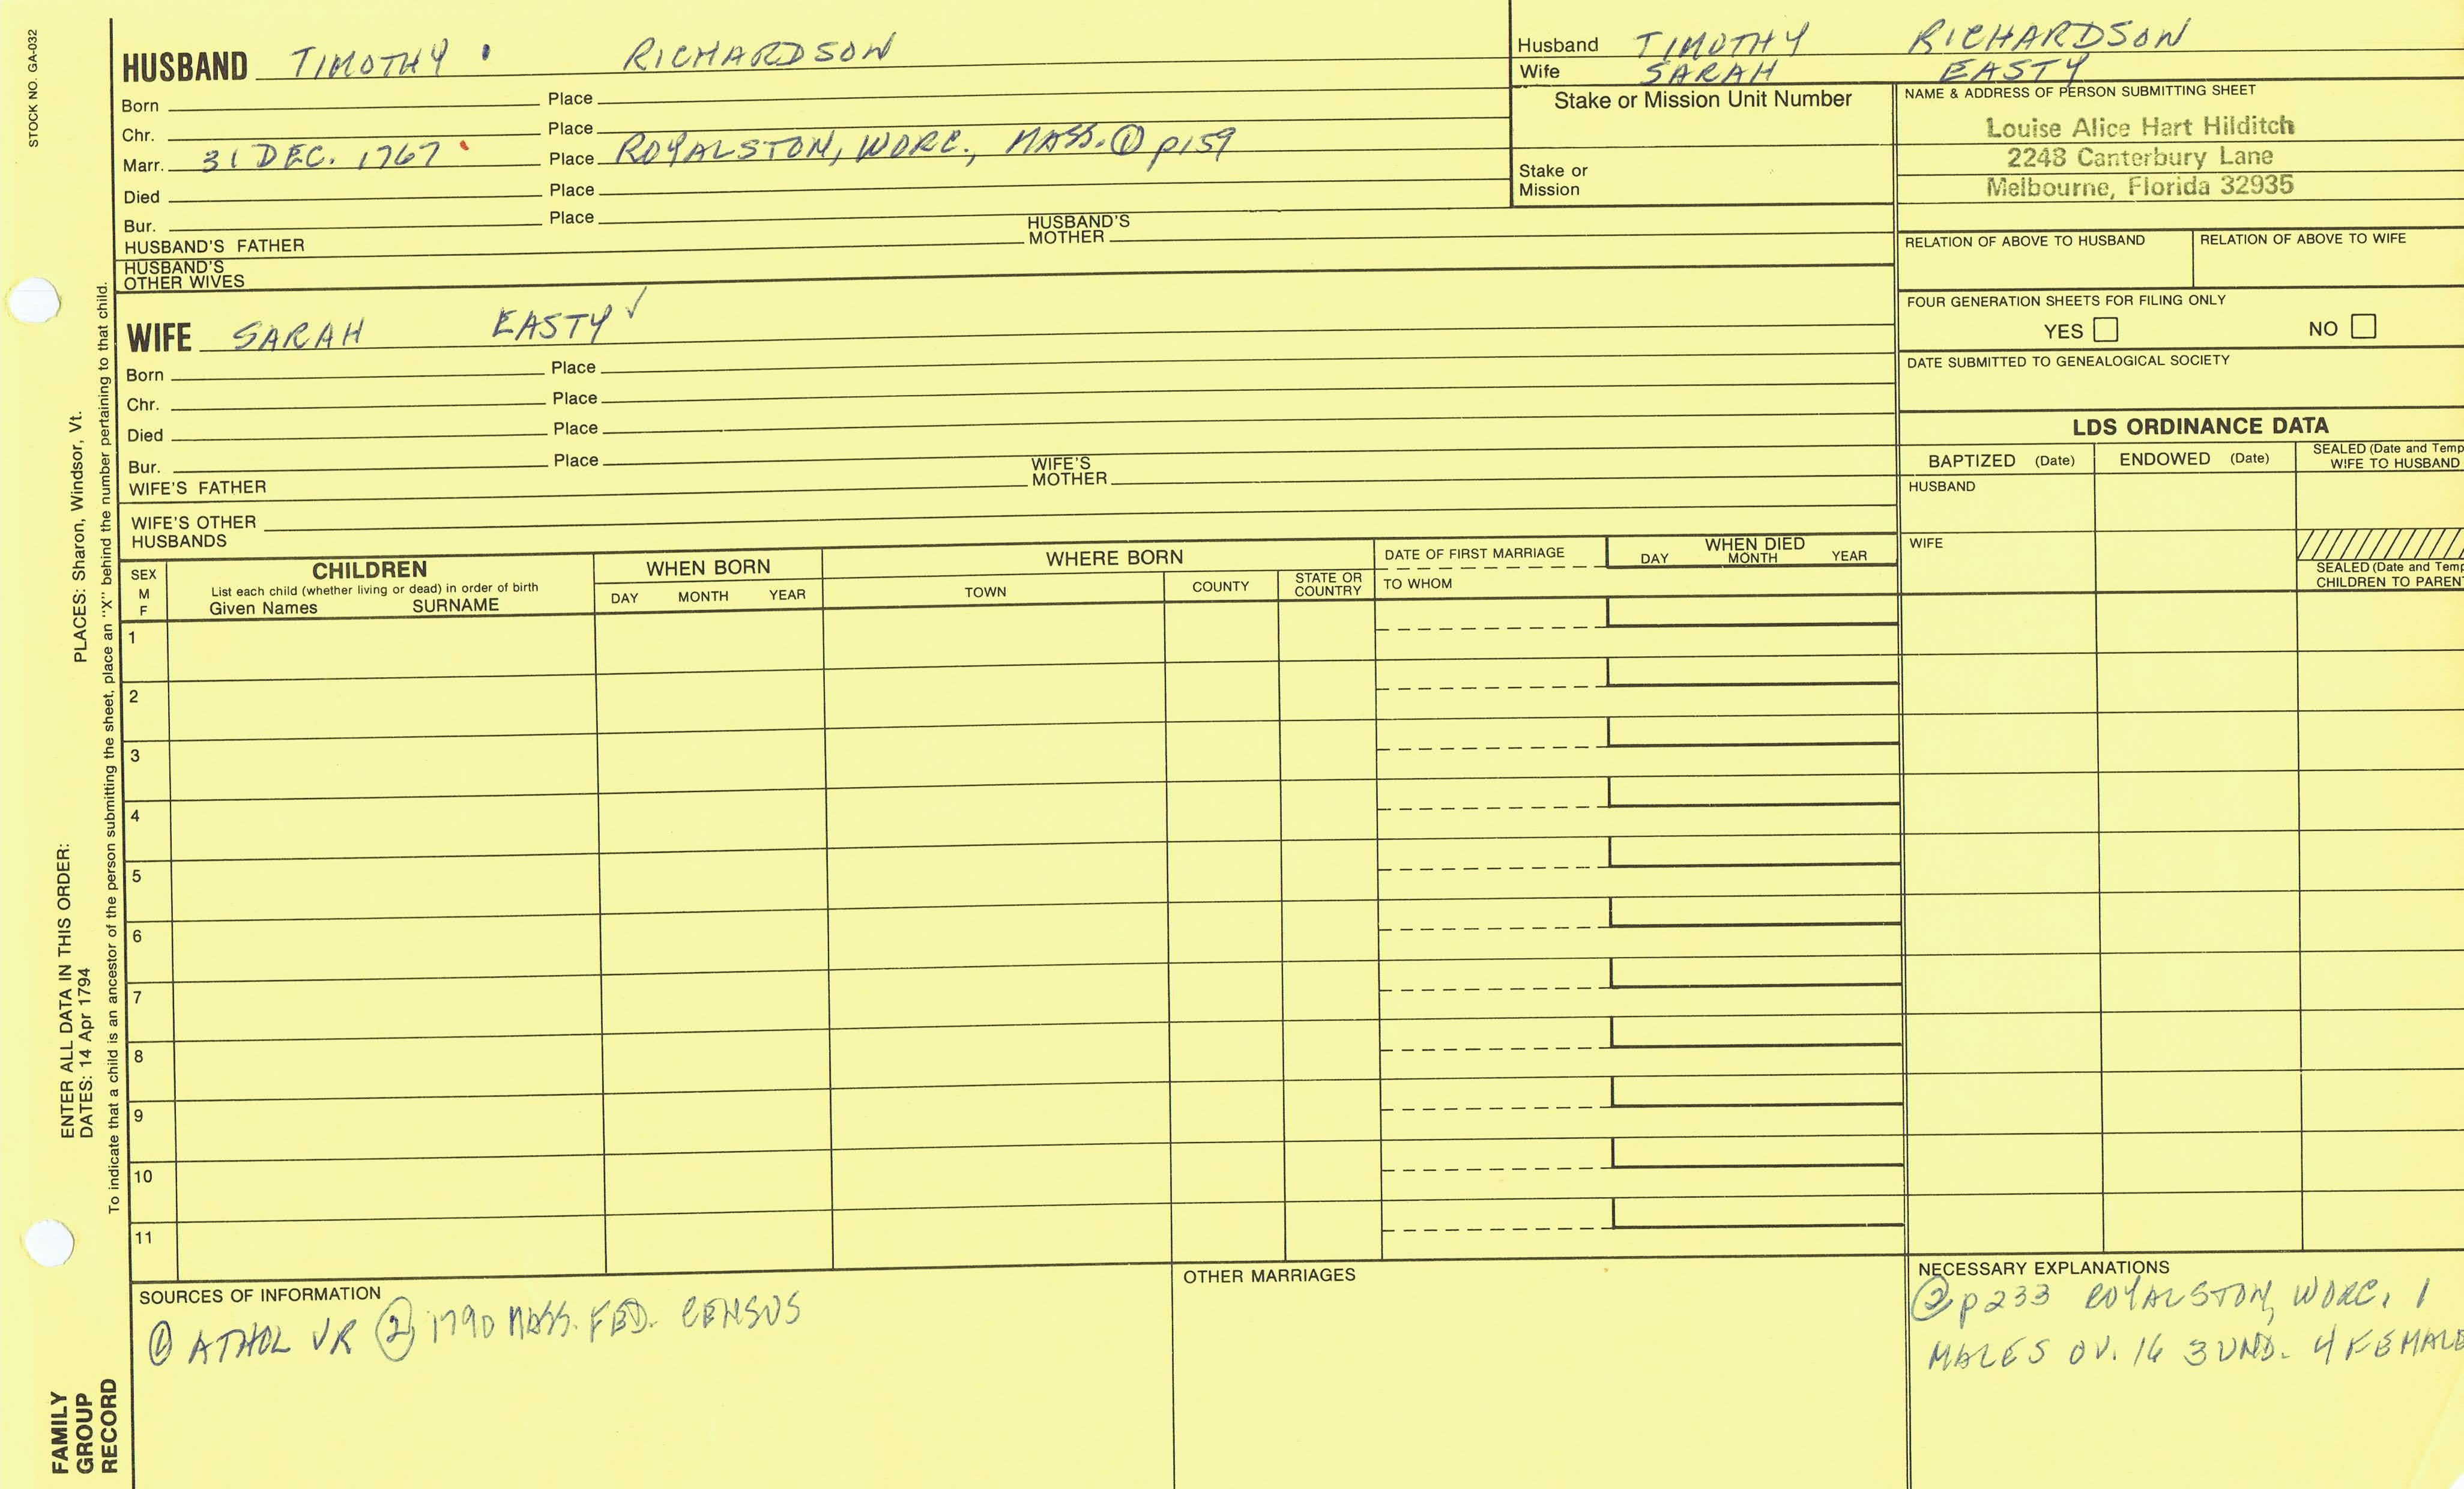 STOCK NO. GA-032
HUSBAND TIMOTHY RICHARDSON
Born Place
Chr. Place
Marr. 31 DEC. 1767 Place ROYALSTON, WORC., MASS. ① p159
Died Place
Bur. Place
HUSBAND'S FATHER HUSBAND'S MOTHER
HUSBAND'S OTHER WIVES
Husband TIMOTHY RICHARDSON
Wife SARAH EASTY
Stake or Mission Unit Number
Stake or Mission
NAME & ADDRESS OF PERSON SUBMITTING SHEET
Louise Alice Hart Hilditch
2248 Canterbury Lane
Melbourne, Florida 32935
RELATION OF ABOVE TO HUSBAND RELATION OF ABOVE TO WIFE
FOUR GENERATION SHEETS FOR FILING ONLY
YES NO
DATE SUBMITTED TO GENEALOGICAL SOCIETY
WIFE SARAH EASTY ✓
Born Place
Chr. Place
Died Place
Bur. Place
WIFE'S FATHER WIFE'S MOTHER
WIFE'S OTHER HUSBANDS
LDS ORDINANCE DATA
BAPTIZED (Date) ENDOWED (Date) SEALED (Date and Temp
WIFE TO HUSBAND
HUSBAND
WIFE
SEALED (Date and Temp
CHILDREN TO PAREN
SEX
M
F
CHILDREN
List each child (whether living or dead) in order of birth
Given Names SURNAME
WHEN BORN
DAY MONTH YEAR
WHERE BORN
TOWN COUNTY STATE OR COUNTRY
DATE OF FIRST MARRIAGE
TO WHOM
WHEN DIED
DAY MONTH YEAR
1
2
3
4
5
6
7
8
9
10
11
SOURCES OF INFORMATION
① ATHOL VR ② 1790 MASS. FED. CENSUS
OTHER MARRIAGES
NECESSARY EXPLANATIONS
② p233 ROYALSTON, WORC. 1
MALES OV. 16 3 UND. 4 FEMALE
ENTER ALL DATA IN THIS ORDER:
DATES: 14 Apr 1794 PLACES: Sharon, Windsor, Vt.
To indicate that a child is an ancestor of the person submitting the sheet, place an "X" behind the number pertaining to that child.
FAMILY
GROUP
RECORD